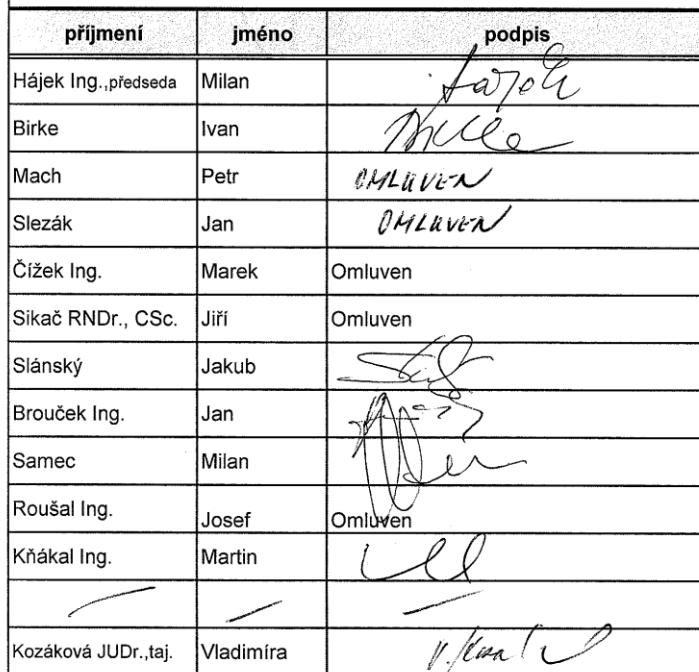 příjmení jméno podpis
Hájek Ing.,předseda Milan
Birke Ivan
Mach Petr OMLUVEN
Slezák Jan OMLUVEN
Čížek Ing. Marek Omluven
Sikač RNDr., CSc. Jiří Omluven
Slánský Jakub
Brouček Ing. Jan
Samec Milan
Roušal Ing. Josef Omluven
Kňákal Ing. Martin
Kozáková JUDr.,taj. Vladimíra